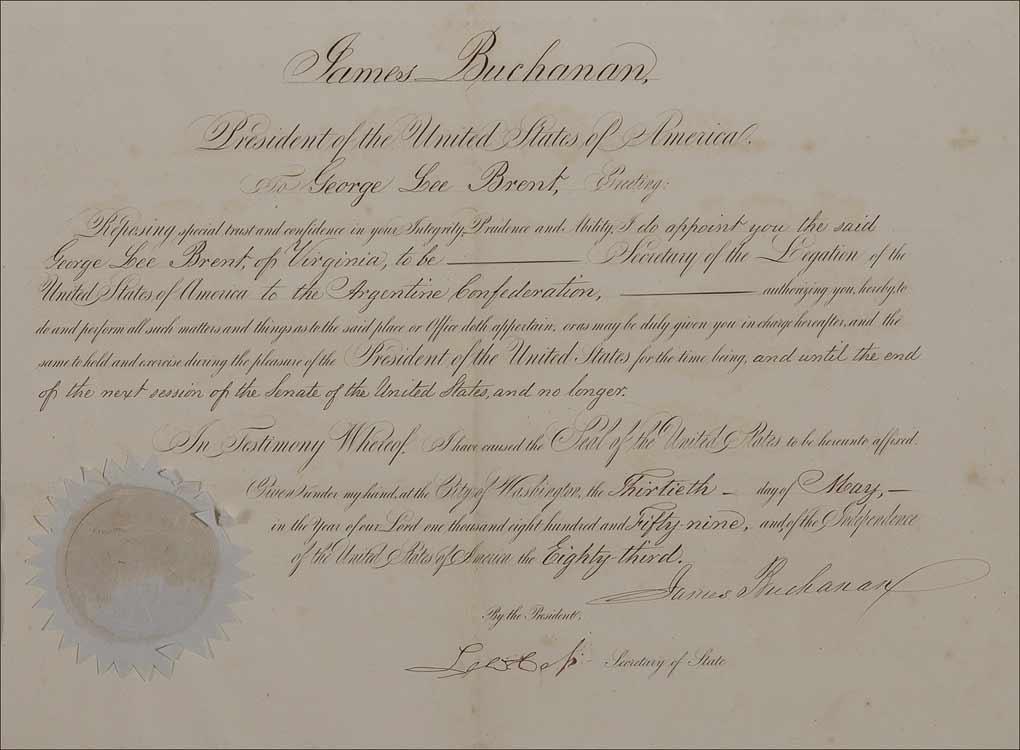 James Buchanan,
President of the United States of America.
To George Lee Brent, Greeting:
Reposing special trust and confidence in your Integrity, Prudence and Ability, I do appoint you the said
George Lee Brent, of Virginia, to be Secretary of the Legation of the
United States of America to the Argentine Confederation, authorizing you, hereby, to
do and perform all such matters and things as to the said place or Office doth appertain, or as may be duly given you in charge hereafter, and the
same to hold and exercise during the pleasure of the President of the United States for the time being, and until the end
of the next session of the Senate of the United States, and no longer.
In Testimony Whereof, I have caused the Seal of the United States to be hereunto affixed.
Given under my hand, at the City of Washington, the Thirtieth day of May,
in the Year of our Lord one thousand eight hundred and Fifty-nine, and of the Independence
of the United States of America the Eighty-third.
James Buchanan
By the President,
Secretary of State